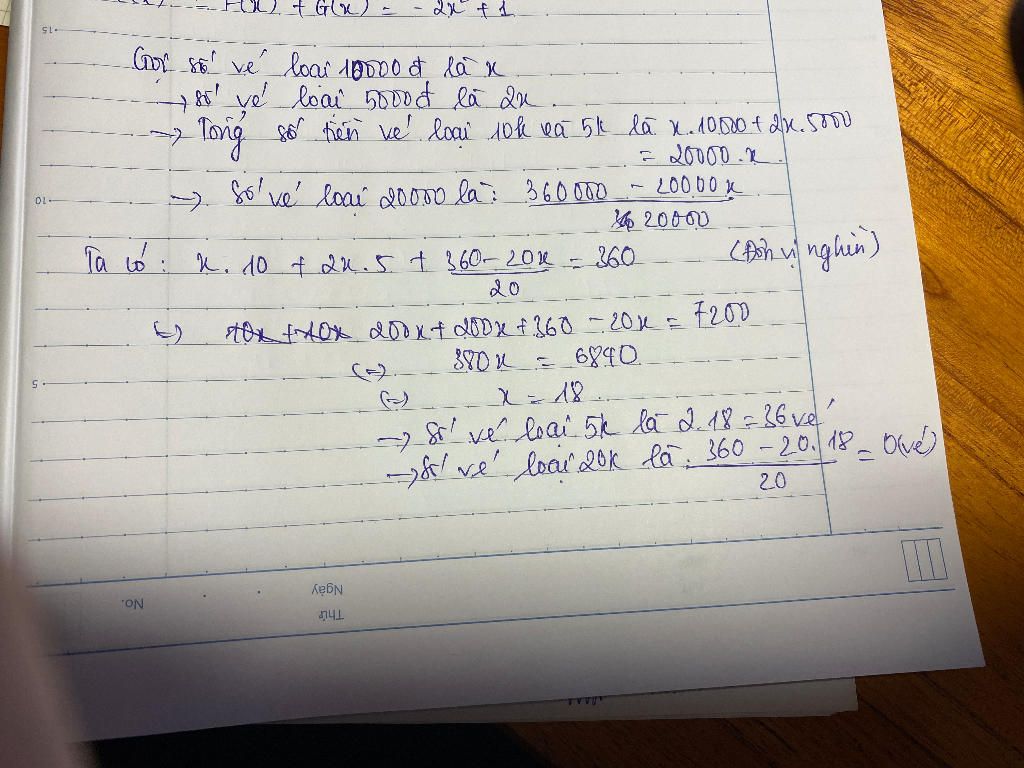 = F(x) + G(x) = - 2x² + 1
Gọi số vé loại 10000đ là x
→ số vé loại 5000đ là 2x
→ Tổng số tiền vé loại 10k và 5k là x.10000 + 2x.5000
= 20000.x
→ Số vé loại 20000 là: (360000 - 20000x)/20000
Ta có: x.10 + 2x.5 + (360 - 20x)/20 = 360 (Đơn vị nghìn)
↔ 10x + 10x 200x + 200x + 360 - 20x = 7200
(=) 380x = 6840
(=) x = 18
→ Số vé loại 5k là 2.18 = 36 vé
→ Số vé loại 20k là. (360 - 20.18)/20 = 0 (vé)
15
10
5
Thứ
Ngày
No.